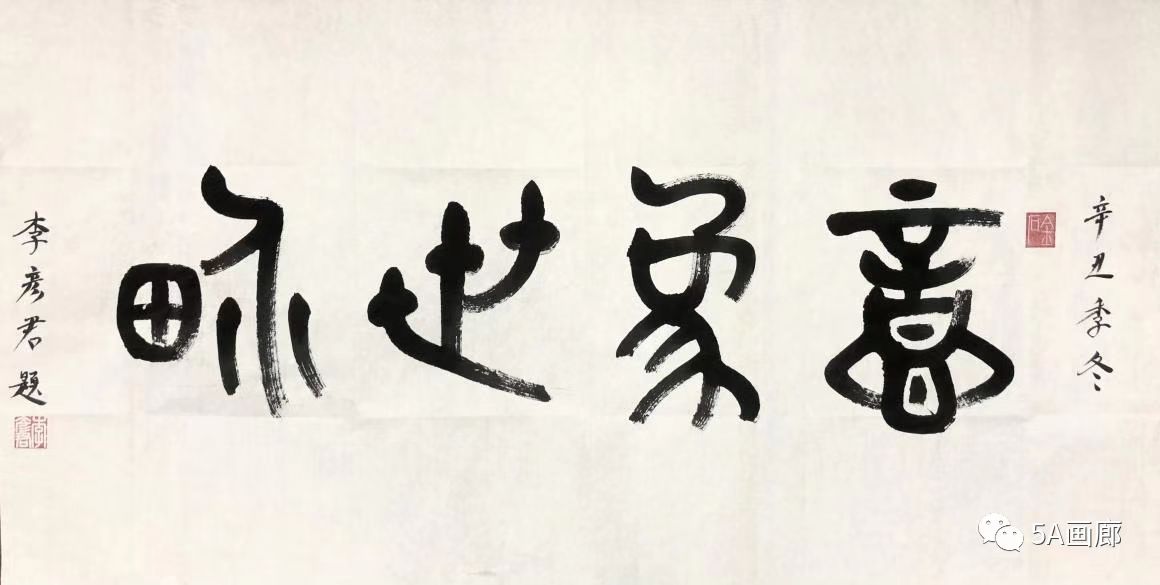 辛丑季冬
金石
意象世界
李彦君题
5A画廊